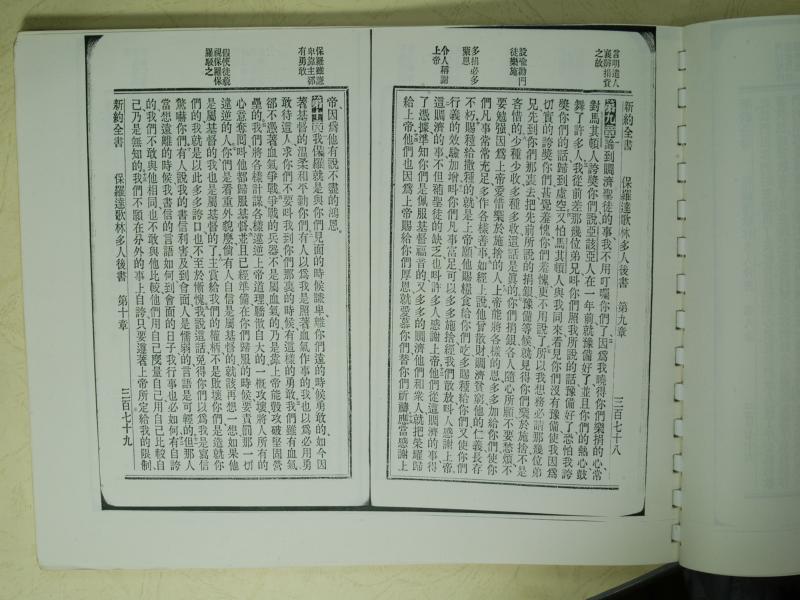 新約全書　保羅達歌林多人後書　第九章　三百七十八
第九章論到賙濟聖徒的事我不用叮囑你們了因爲我曉得你們樂捐的心常
對馬其頓人誇獎你們說亞該亞人在一年前就豫備好了並且你們的熱心鼓
舞了許多人我從前差那幾位弟兄叫你們照我所說的話豫備好了恐怕我誇
獎你們的話歸到虛空又怕馬其頓人與我同來看見你們沒有豫備好使我因爲
切實的誇獎你們甚覺羞愧你們羞愧更不用說了所以我想務必請那幾位弟
兄先到你們那裏去把先前所說的捐銀豫備等候就見得你們樂於施捨不是
吝惜的少種少收多種多收這話是眞的你們捐銀各人隨心所願不要愁煩不
要勉強因爲上帝愛惜樂於施捨的人上帝能將各樣的恩多多加給你們使你
們凡事常常充足多作各樣善事如經上說他曾散財賙濟貧窮他的仁義長存
不朽賜種給撒種的就是上帝願他賜糧食給你們吃多賜種給你們又使你們
行義的效驗加增叫你們凡事富足可以多多施捨經我們散放叫人感謝上帝
這賙濟的事不但補聖徒的缺乏也叫許多人感謝上帝他們從這賙濟的事得
了憑據準知你們是佩服基督福音的又多多的賙濟他們和衆人就把榮耀歸
給上帝他們也因爲上帝賜給你們厚恩就愛慕你們替你們祈禱應當感謝上
言明遣人
襄辦捐貲
之故
設喻勸門
徒樂施
多捐必多
蒙恩
令人稱謝
上帝
帝、因爲他有說不盡的鴻恩。
第十章我保羅就是與你們見面的時候謙卑離你們遠的時候勇敢的如今因
著基督的溫柔和平勸你們有人以爲我是照著血氣作事的我也以爲必用勇
敢待這人求你們不要叫我到你們那裏的時候有這樣的勇敢我們雖有血氣
卻不憑著血氣爭戰爭戰的兵器不是屬血氣的乃是靠上帝能毀攻破堅固營
壘的我們將各樣計謀各樣違逆上帝道理驕傲自大的一概攻壞將人所有的
心意奪囘叫他都歸服基督並且已經準備在你們歸服的時候要責罰那一切
違逆的人你們是看重外貌麽倘有人自信是屬基督的就該再想一想如果他
是屬基督的我也是屬基督的了主賞給我們的權柄不是敗壞你們是造就你
們的我就是以此多多誇口也不至於慚愧我說這話免得你們以爲我是寫信
驚嚇你們有人說我的書信利害及到會面人是懦弱的言語是可輕的但那人
當想遠離的時候我書信的言語如何到會面的日子我行事也必如何有自誇
的我們不敢與他相同也不敢與他比較他們用自己度量自己用自己比較自
己乃是無知的我們不願在分外的事上自誇只要遵著上帝所定給我的限制
新約全書　保羅達歌林多人後書　第十章　三百七十九
保羅雖謙
卑靠主卻
有勇敢
假使徒藐
視保羅保
羅駁之